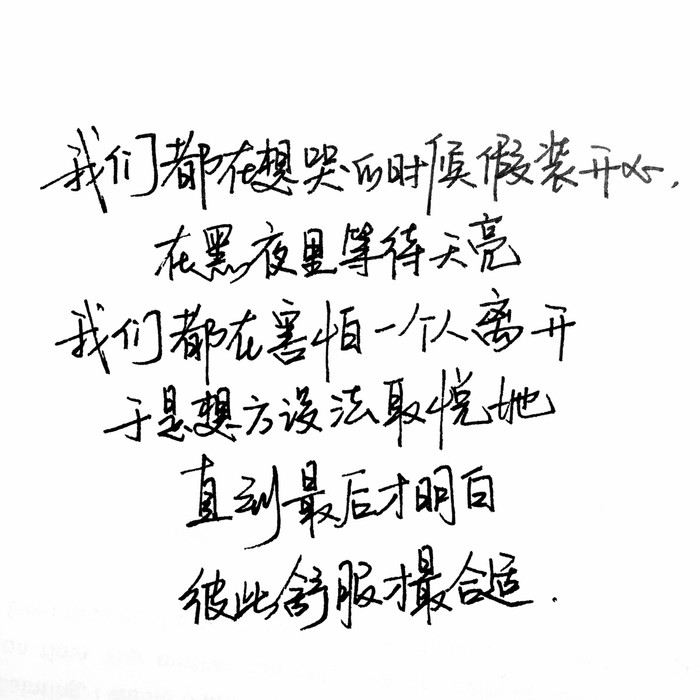 我们都在想哭的时候假装开心,
在黑夜里等待天亮
我们都在害怕一个人离开
于是想方设法取悦她
直到最后才明白
彼此舒服才最合适.